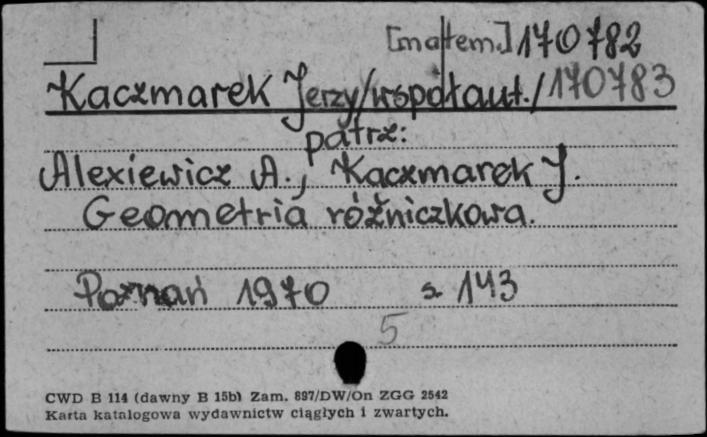 [matem.] 170782
Kaczmarek Jerzy/współaut./170783
patrz:
Alexiewicz A., Kaczmarek J.
Geometria różniczkowa.
Poznań 1970 s 143
5
CWD B 114 (dawny B 15b) Zam. 897/DW/On ZGG 2542
Karta katalogowa wydawnictw ciągłych i zwartych.